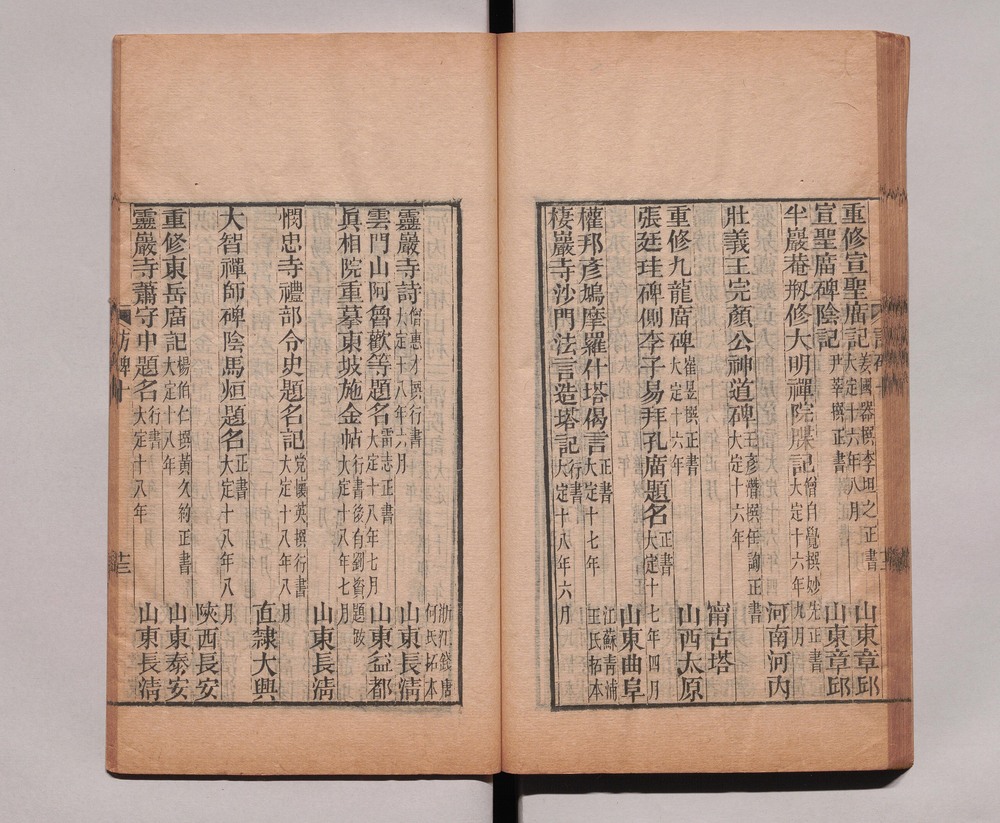 重修宣聖廟記 姜國器撰李坦之正書 大定十六年八月 山東章邱
宣聖廟碑陰記 尹莘撰正書 山東章邱
半巖菴剏修大明禪院牒記 僧自覺撰妙先正書 大定十六年九月 河南河內
壯義王完顏公神道碑 王彥潛撰任詢正書 大定十六年 甯古塔
重修九龍廟碑 崔昱撰正書 大定十六年 山西太原
張廷珪碑側李子易拜孔廟題名 正書 大定十七年四月 山東曲阜
權邦彥鳩摩羅什塔偈言 正書 大定十七年 江蘇青浦王氏拓本
棲巖寺沙門法言造塔記 行書 大定十八年六月
靈巖寺詩 僧惠才撰行書 大定十八年六月 山東長淸 浙江錢唐何氏拓本
雲門山阿魯歡等題名 雷志正書 大定十八年七月 山東益都
眞相院重摹東坡施金帖 行書後有劉資題跋 大定十八年七月 山東長淸
憫忠寺禮部令史題名記 党懷英撰行書 大定十八年八月 直隸大興
大智禪師碑陰馬烜題名 正書 大定十八年八月 陝西長安
重修東岳廟記 楊伯仁撰黃久約正書 大定十八年 山東泰安
靈巖寺蕭守中題名 行書 大定十八年 山東長淸
訪碑
十三